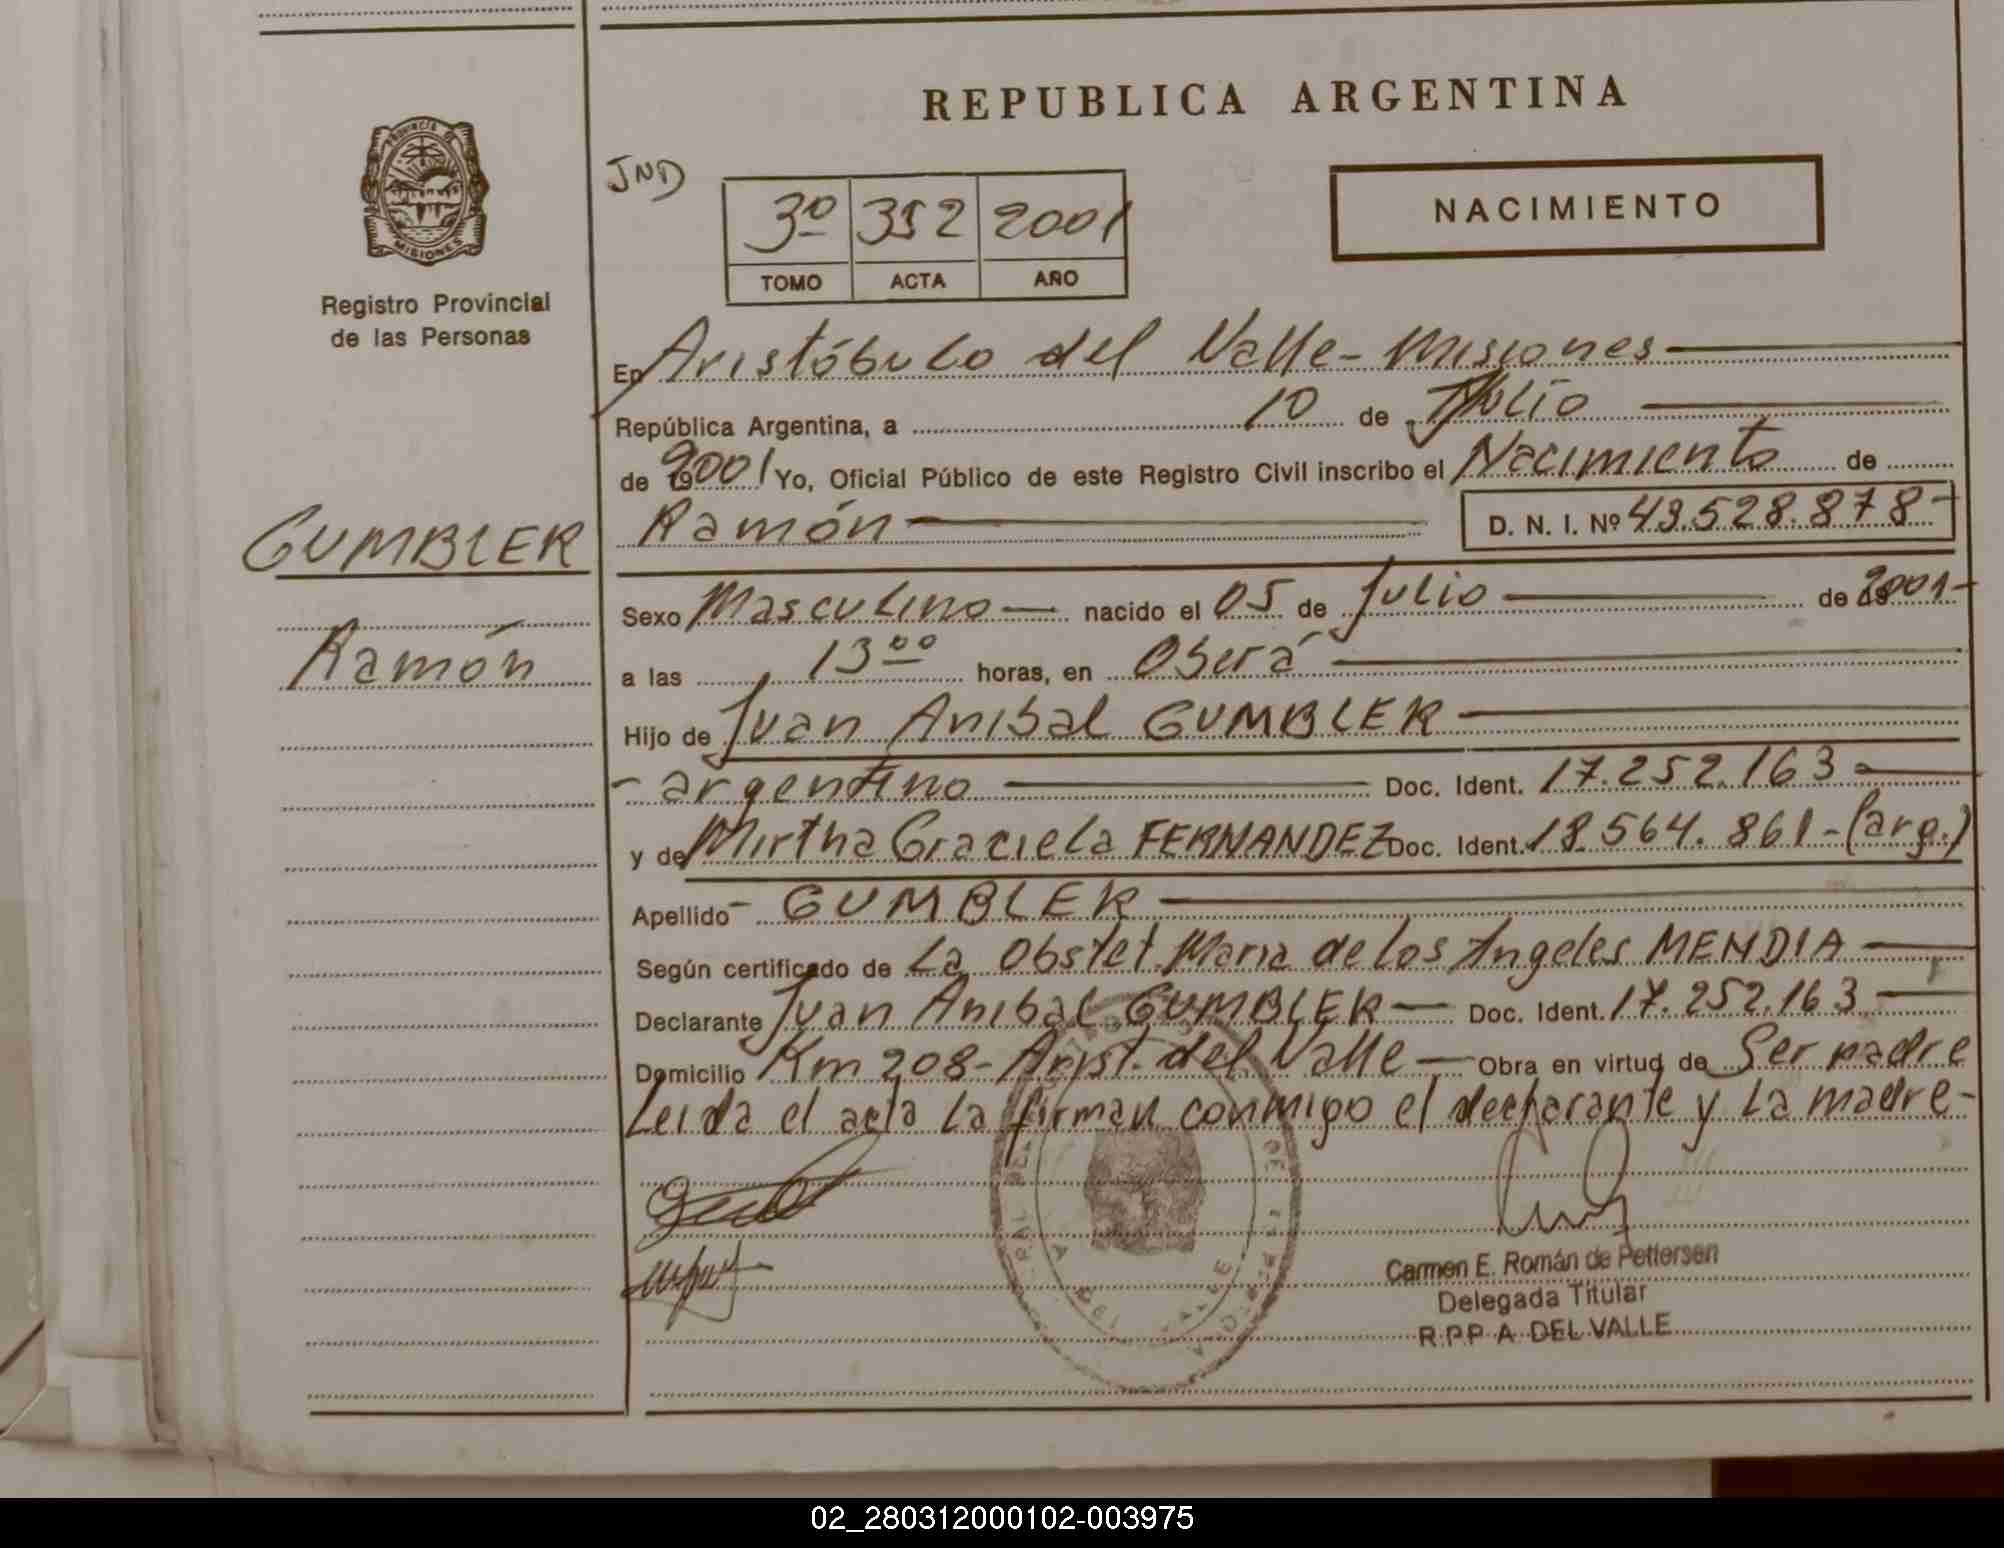 REPUBLICA ARGENTINA
PROVINCIA DE
MISIONES
Registro Provincial
de las Personas
JND
3º 352 2001
TOMO ACTA AÑO
NACIMIENTO
En Aristóbulo del Valle - Misiones
República Argentina, a 10 de Julio
de 2001 Yo, Oficial Público de este Registro Civil inscribo el Nacimiento de
GUMBLER
Ramón
Ramón D. N. I. Nº 43.528.878-
Sexo Masculino nacido el 05 de Julio de 2001-
a las 13 00 horas, en Oberá
Hijo de Juan Anibal GUMBLER
- argentino Doc. Ident. 17.252.163
y de Mirtha Graciela FERNANDEZ Doc. Ident. 18.564.861-(arg.)
Apellido - GUMBLER
Según certificado de La Obstet. Maria de Los Angeles MENDIA
Declarante Juan Anibal GUMBLER Doc. Ident. 17.252.163
Domicilio Km 208 - Arist. del Valle Obra en virtud de Ser padre
Leida el acta la firman conmigo el declarante y la madre-
Carmen E. Román de Pettersen
Delegada Titular
R.P.P. A. DEL VALLE
02_280312000102-003975